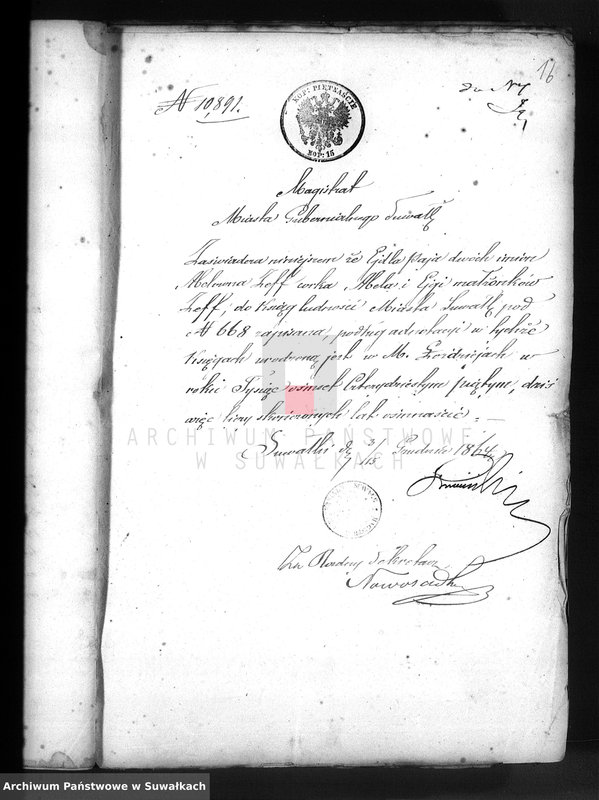 16
N 10,891.
KOP: PIĘTNAŚCIE
KOP: 15
Magistrat
Miasta Gubernialnego Suwałk
Zaświadcza niniejszem że Gitla Paja dwóch imion
Zoff córka Abela i małżonków
Zoff, do Ksiąg ludności Miasta Suwałk pod
N 668 zapisana, podług adnotacji w tychże
Księgach urodzoną jest w M. Łoździejach w
roku Tysiąc osiemset Czterdziestym piątym, dziś
więc liczy skończonych lat ośmnaście.
Suwałki d. 3/15 Grudnia 1864
ARCHIWUM PAŃSTWOWE
W SUWAŁKACH
Za Radcy Sekretarz
Nowosadko
Archiwum Państwowe w Suwałkach